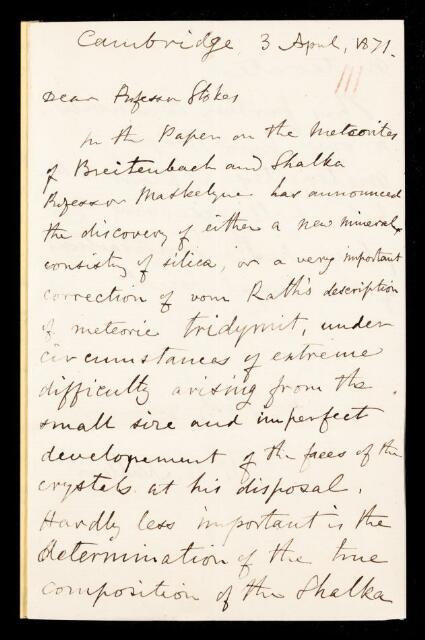 Cambridge, 3 April, 1871.
Dear Professor Stokes
In the Paper on the Meteorites
of Breitenbach and Shalka
Professor Maskelyne has announced
the discovery of either a new mineral,
consistg of silica, or a very important
correction of vom Rath's description
of meteoric tridymit, under
circumstances of extreme
difficulty arising from the
small size and imperfect
developement of the faces of the
crystals at his disposal.
Hardly less important is the
determination of the true
composition of the Shalka